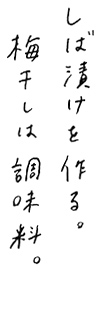 しば漬けを作る。
梅干しは調味料。